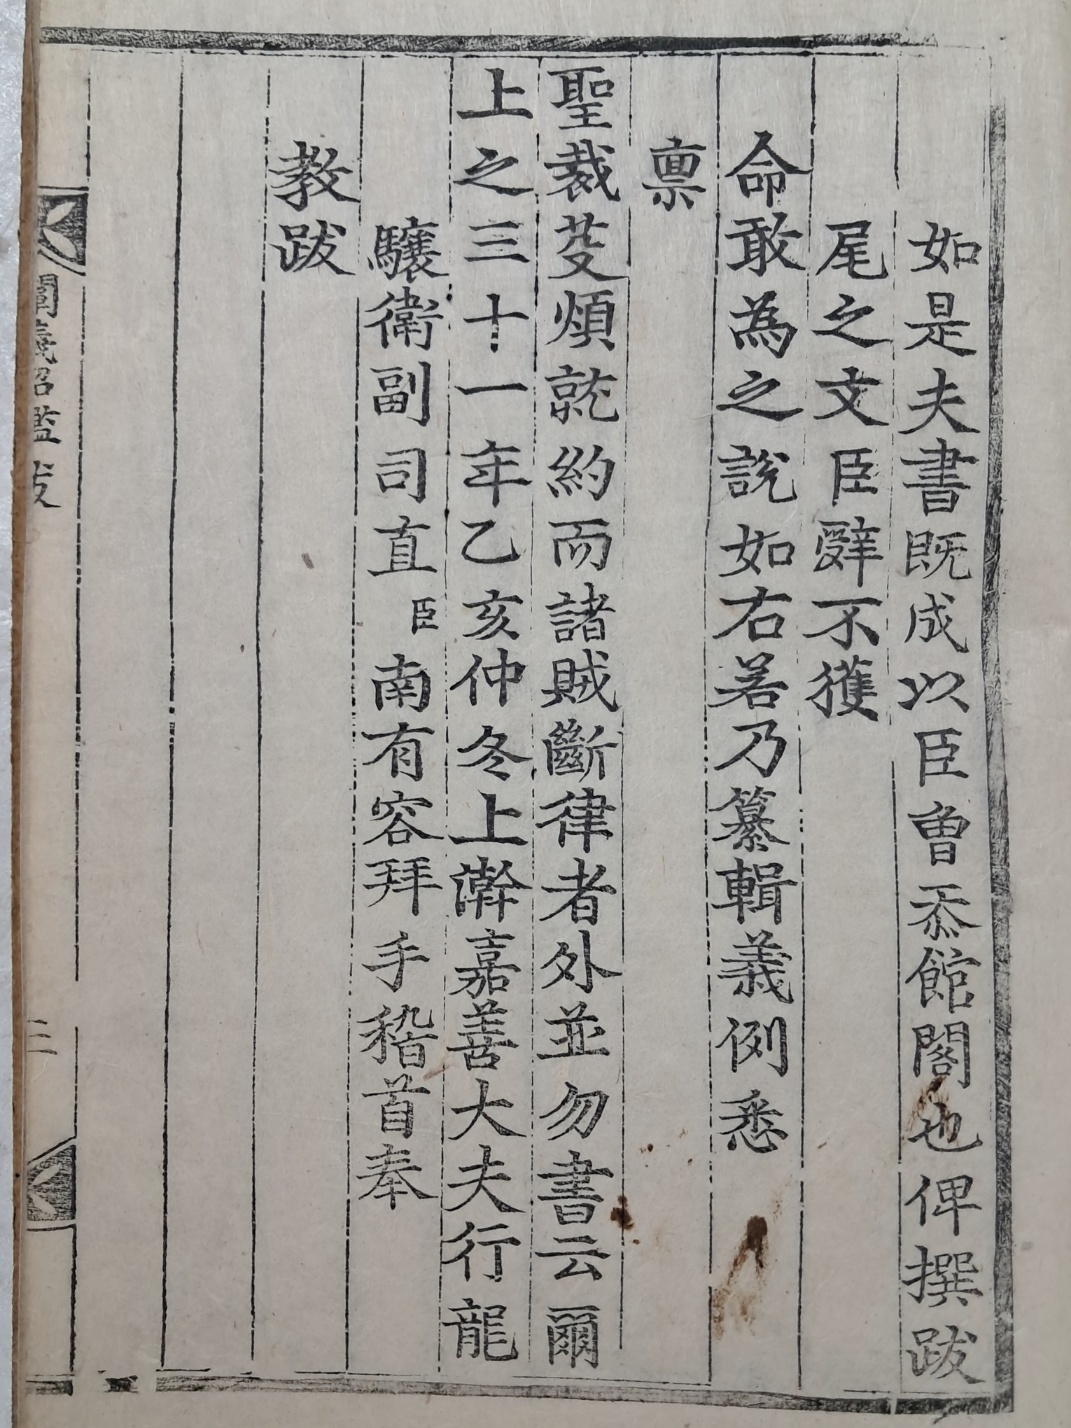 如是夫書既成以臣曾忝館閣也俾撰跋
尾之文臣辭不獲
命敢為之說如右若乃纂輯義例悉
稟
聖裁芟煩就約而諸賊斷律者外並勿書云爾
上之三十一年乙亥仲冬上澣嘉善大夫行龍
驤衛副司直臣南有容拜手稽首奉
教跋
闡義昭鑑 跋
三